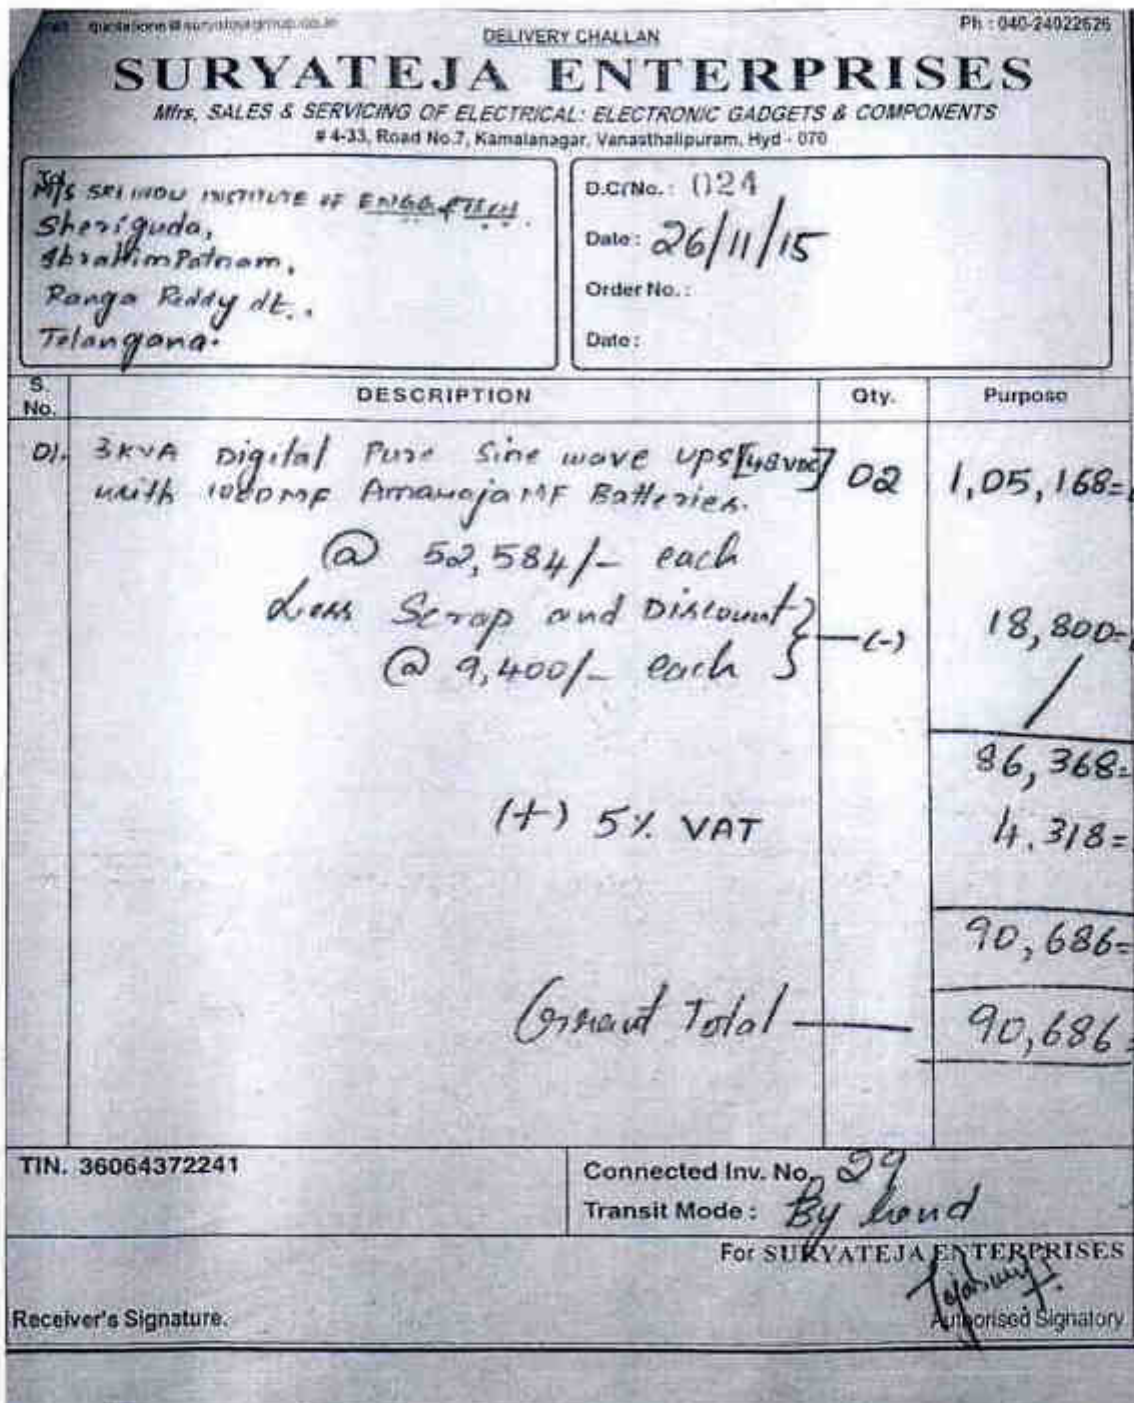 quotations@suryatejagroup.co.in
Ph : 040-24022626
DELIVERY CHALLAN
SURYATEJA ENTERPRISES
Mfrs, SALES & SERVICING OF ELECTRICAL: ELECTRONIC GADGETS & COMPONENTS
# 4-33, Road No.7, Kamalanagar, Vanasthalipuram, Hyd - 070
To
M/s SRI INDU INSTITUTE OF ENGG & TECH.
Sheriguda,
Ibrahim Patnam,
Ranga Reddy dt..
Telangana.
D.C/No. : 024
Date : 26/11/15
Order No. :
Date :
S. No. DESCRIPTION Qty. Purpose
01. 3KVA Digital Pure Sine wave UPS [48VDC] 02 1,05,168=
with Amaraja MF Batteries.
@ 52,584/- each
Less Scrap and Discount } —(-) 18,800=
@ 9,400/- each
86,368=
(+) 5% VAT 4,318=
90,686=
Graund Total — 90,686=
TIN. 36064372241
Connected Inv. No. 29
Transit Mode : By hand
For SURYATEJA ENTERPRISES
Receiver's Signature.
Authorised Signatory